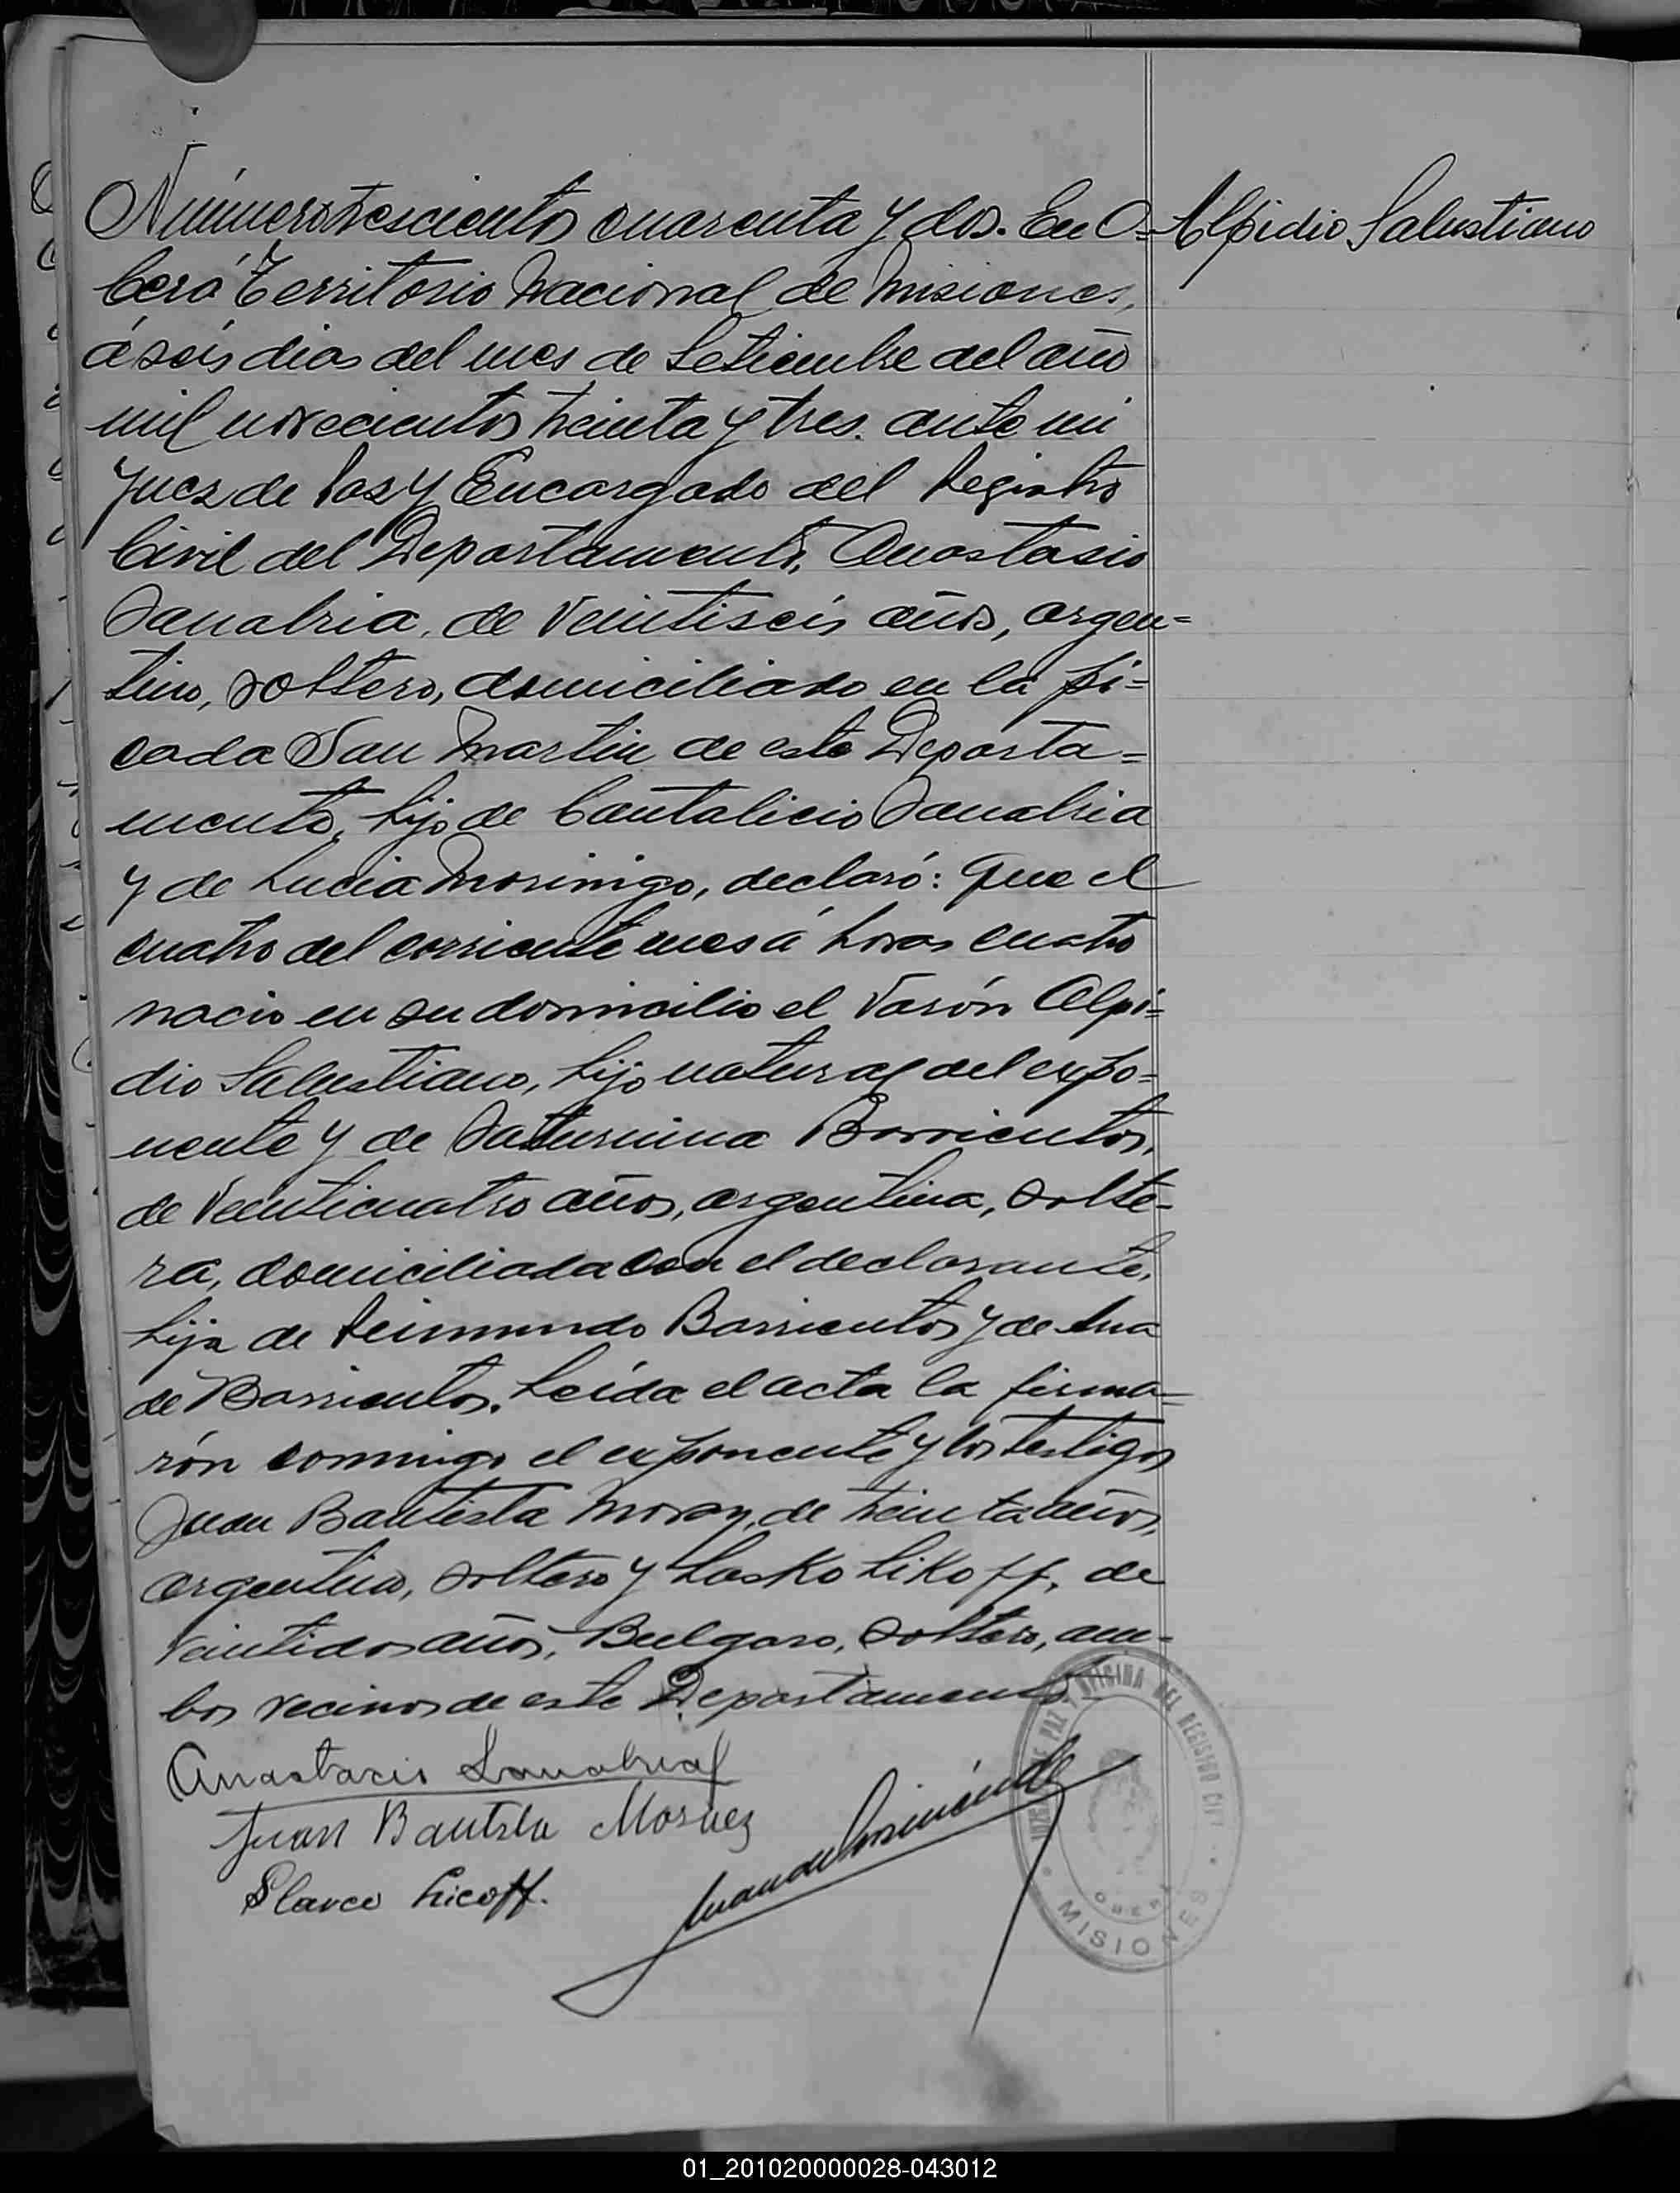 Número trescientos cuarenta y dos. En O=
Alpidio Salustiano
berá Territorio Nacional de Misiones,
á seis dias del mes de Setiembre del año
mil novecientos treinta y tres. ante mi
Juez de Paz y Encargado del Registro
Civil del Departamento, Anastasio
Sanabria, de veintiseis años, argen=
tino, soltero, domiciliado en la pi=
cada San Martin de este Departa=
mento, hijo de Cantalicio Sanabria
y de Lucia Morinigo, declaró: Que el
cuatro del corriente mes á horas cuatro
nacio en su domicilio el varón Alpi=
dio Salustiano, hijo natural del expo=
nente y de Saturnina Barrientos,
de veinticuatro años, argentina, solte=
ra, domiciliada con el declarante,
hija de Reimundo Barrientos y de Ana
de Barrientos. Leída el acta la firma=
rón conmigo el exponente y los testigos
Juan Bautista de treinta años,
argentino, soltero y Lasko Likoff, de
veintidos años, Bulgaro, soltero, am=
bos vecinos de este Departamento
Anastacio Sanabria
Juan Bautista
Slavco Licoff.
JUZGADO DE PAZ Y OFICINA DEL REGISTRO CIVIL
OBERÁ
MISIONES
01_201020000028-043012